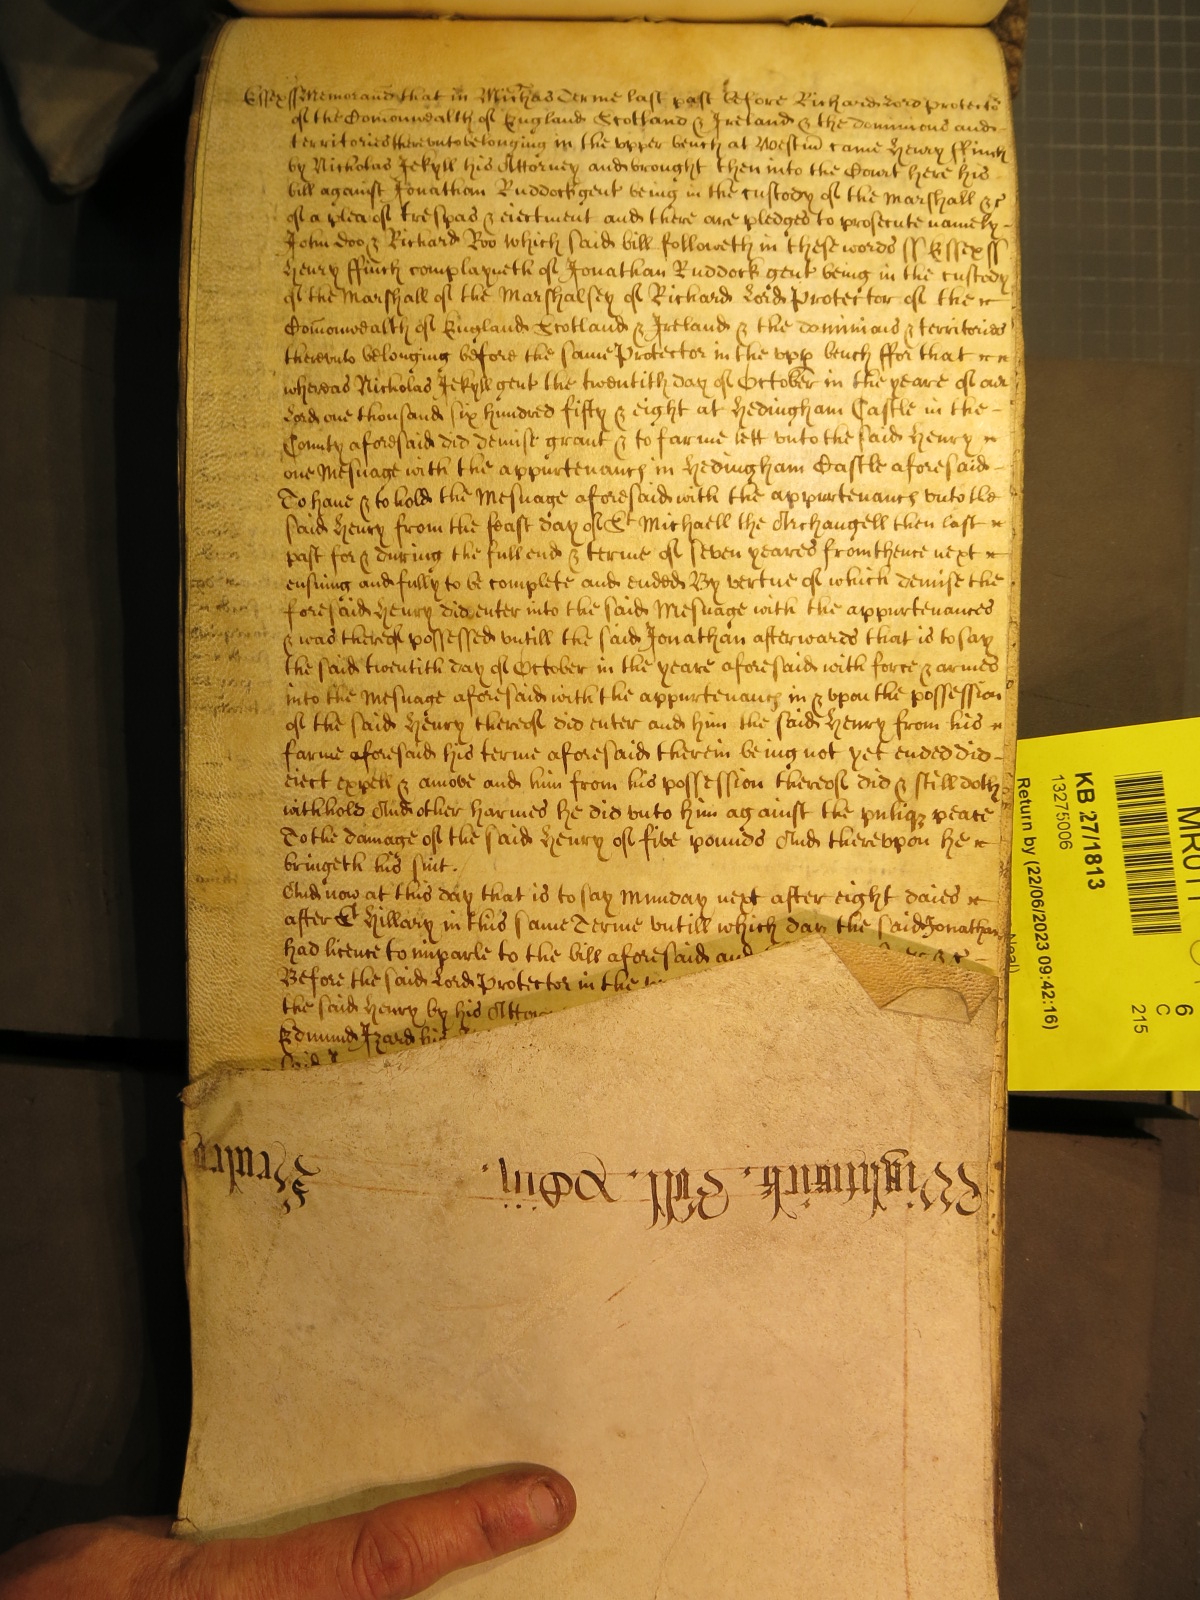 Essex ss Memorand that in Michas Terme last past before Richard Lord Protector
of the Comonwealth of England Scotland & Ireland & the dominions and
territories thereunto belonging in the vpper bench at Westm came Henry ffinch
by Nicholas Jekyll his Attorney and brought then into the Court here his
bill against Jonathan Ruddock gent being in the custody of the Marshall &c
of a plea of trespas & eiectment and there are pledges to prosecute namely
John Doo & Richard Roo which said bill followeth in these words ss Essex ss
Henry ffinch complayneth of Jonathan Ruddock gent being in the custody
of the Marshall of the Marshalsey of Richard Lord Protector of the
Comonwealth of England Scotland & Ireland & the dominions & territories
therevnto belonging before the same Protector in the vpp bench ffor that
whereas Nicholas Jekyll gent the twentith day of October in the yeare of our
Lord one thousand six hundred fifty & eight at Hedingham Castle in the
County aforesaid did demise grant & to farme lett vnto the said Henry
one Mesuage with the appurtenances in Hedingham Castle aforesaid
To have & to hold the Mesuage aforesaid with the appurtenances vnto the
said Henry from the feast day of St Michaell the Archangell then last
past for & during the full end & terme of seven yeares from thence next
ensuing and fully to be complete and ended By vertue of which demise the
foresaid Henry did enter into the said Mesuage with the appurtenances
& was thereof possessed vntill the said Jonathan afterwards that is to say
the said twentith day of October in the yeare aforesaid with force & armes
into the Mesuage aforesaid with the appurtenances in & vpon the possession
of the said Henry thereof did enter and him the said Henry from his
farme aforesaid his terme aforesaid therein being not yet ended did
eiect expell & amove and him from his possession thereof did & still doth
withhold And other harmes he did vnto him against the publiq peace
To the damage of the said Henry of five pounds And therevpon he
bringeth his suit.
And now at this day that is to say Munday next after eight daies
after St Hillary in this same Terme vntill which day the said Jonathan
had licence to imparle to the bill aforesaid and &c
Before the said Lord Protector in the
the said Henry by his Attor
Edmund Izard his
said
Wightwick. Coll. xviij.
MRUT
KB 27/1813
13275006
Return by (22/06/2023 09:42:16)
6
C
215